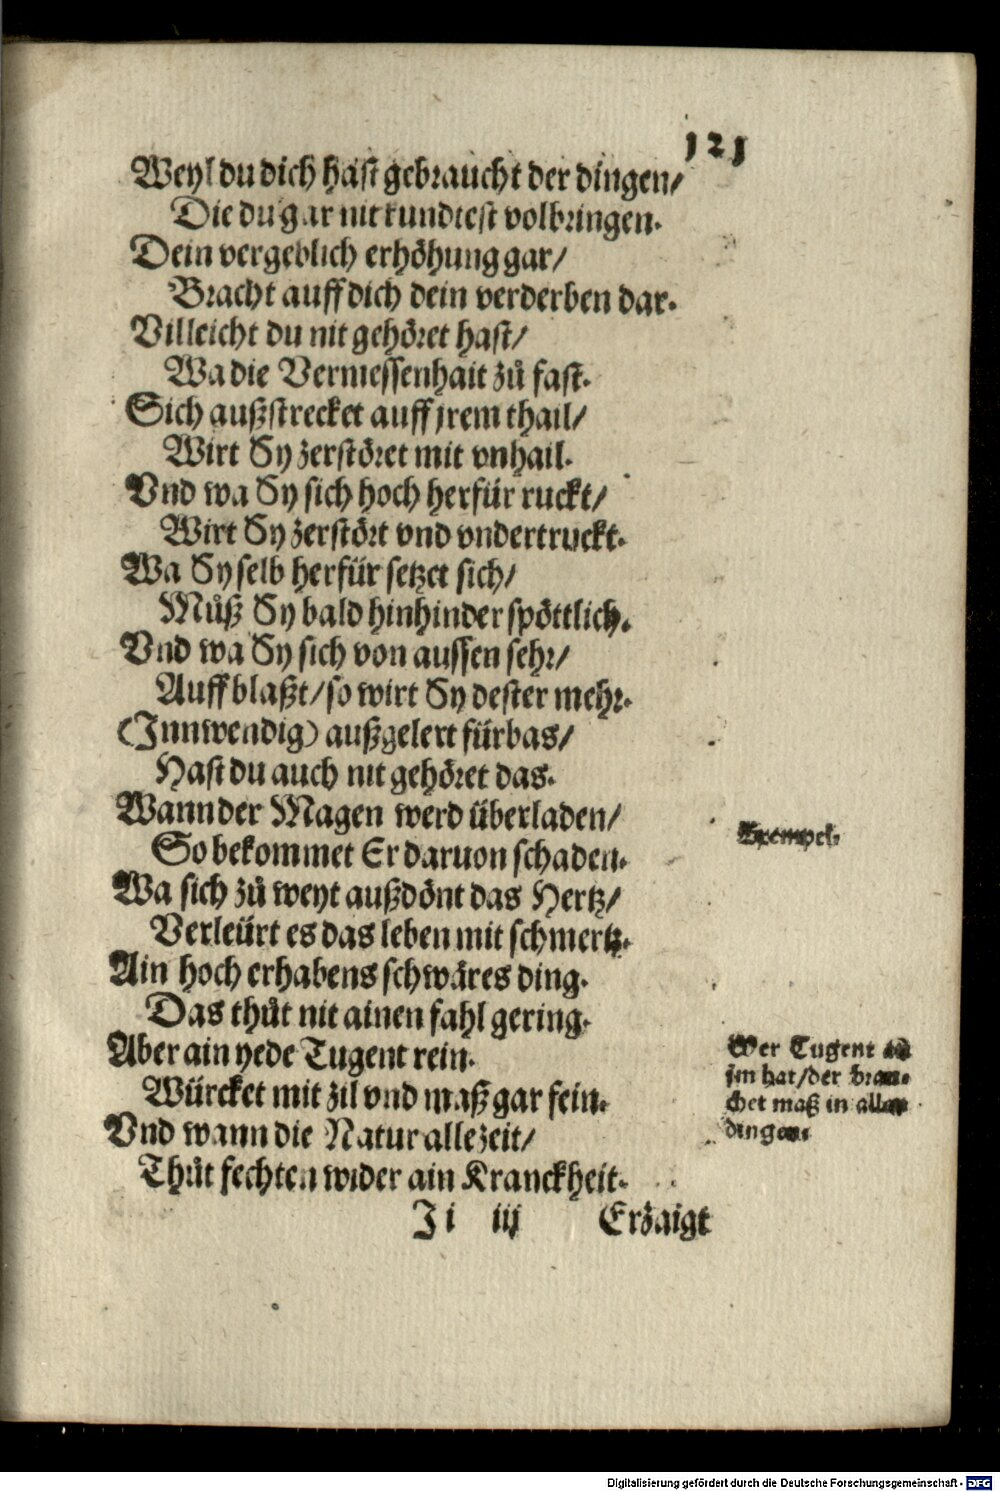 121
Weyl du dich hast gebraucht der dingen/
Die du gar nit kundtest volbringen.
Dein vergeblich erhöhung gar/
Bracht auff dich dein verderben dar.
Villeicht du nit gehöret hast/
Wa die Vermessenhait zů fast.
Sich außstrecket auff jrem thail/
Wirt Sy zerstöret mit vnhail.
Vnd wa Sy sich hoch herfür ruckt/
Wirt Sy zerstört vnd vndertruckt.
Wa Sy selb herfür setzet sich/
Můß Sy bald hinhinder spöttlich.
Vnd wa Sy sich von aussen sehr/
Auff blaßt/so wirt Sy dester mehr.
(Innwendig) außgelert fürbas/
Hast du auch nit gehöret das.
Wann der Magen werd überladen/
So bekommet Er daruon schaden.
Exempel.
Wa sich zů weyt außdönt das Hertz/
Verleürt es das leben mit schmertz.
Ain hoch erhabens schwäres ding.
Das thůt nit ainen fahl gering.
Aber ain yede Tugent rein.
Würcket mit zil vnd maß gar fein.
Vnd wann die Natur allezeit/
Thůt fechten wider ain Kranckheit.
Wer Tugent in
jm hat/der brau-
chet maß in allen
dingen.
Ji iij Erzaigt
Digitalisierung gefördert durch die Deutsche Forschungsgemeinschaft - DFG